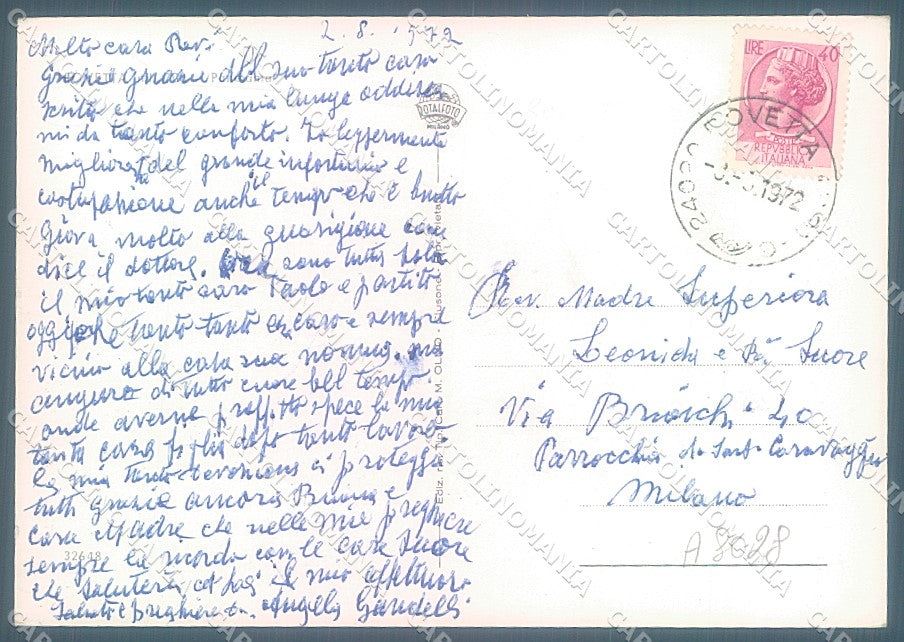 2.8.1972
Molto cara Rev.
Grazie grazie del suo tanto caro
scritto che nella mia lunga
mi da tanto conforto. Io leggermente
migliorata del grande infortunio e
anche il tempo che è brutto
Giova molto alla guarigione come
dice il dottore. sono tutta sola
il mio tanto caro Paolo è partito
oggi tanto tanto caro e sempre
vicino alla cara sua nonna, ma
auguro di tutto cuore bel tempo.
onde averne profitto specie la mia
tanto cara figlia dopo tanto lavoro
la mia tanto ci protegga
tutti grazie ancora Buona e
cara Madre che nelle mie preghiere
sempre la ricordo con le care Suore
che saluterà il mio affettuoso
saluto e preghiere Angela Gandelli
Rev. Madre Superiora
Leonida e Suore
Via Brioschi 40
Parrocchia Caravaggio
Milano
A 9028
32648
TOTALFOTO
MILANO
LIRE 40
POSTE
REPVBBLICA
ITALIANA
ROVETTA
24020
1972
CARTOLINOMANIA